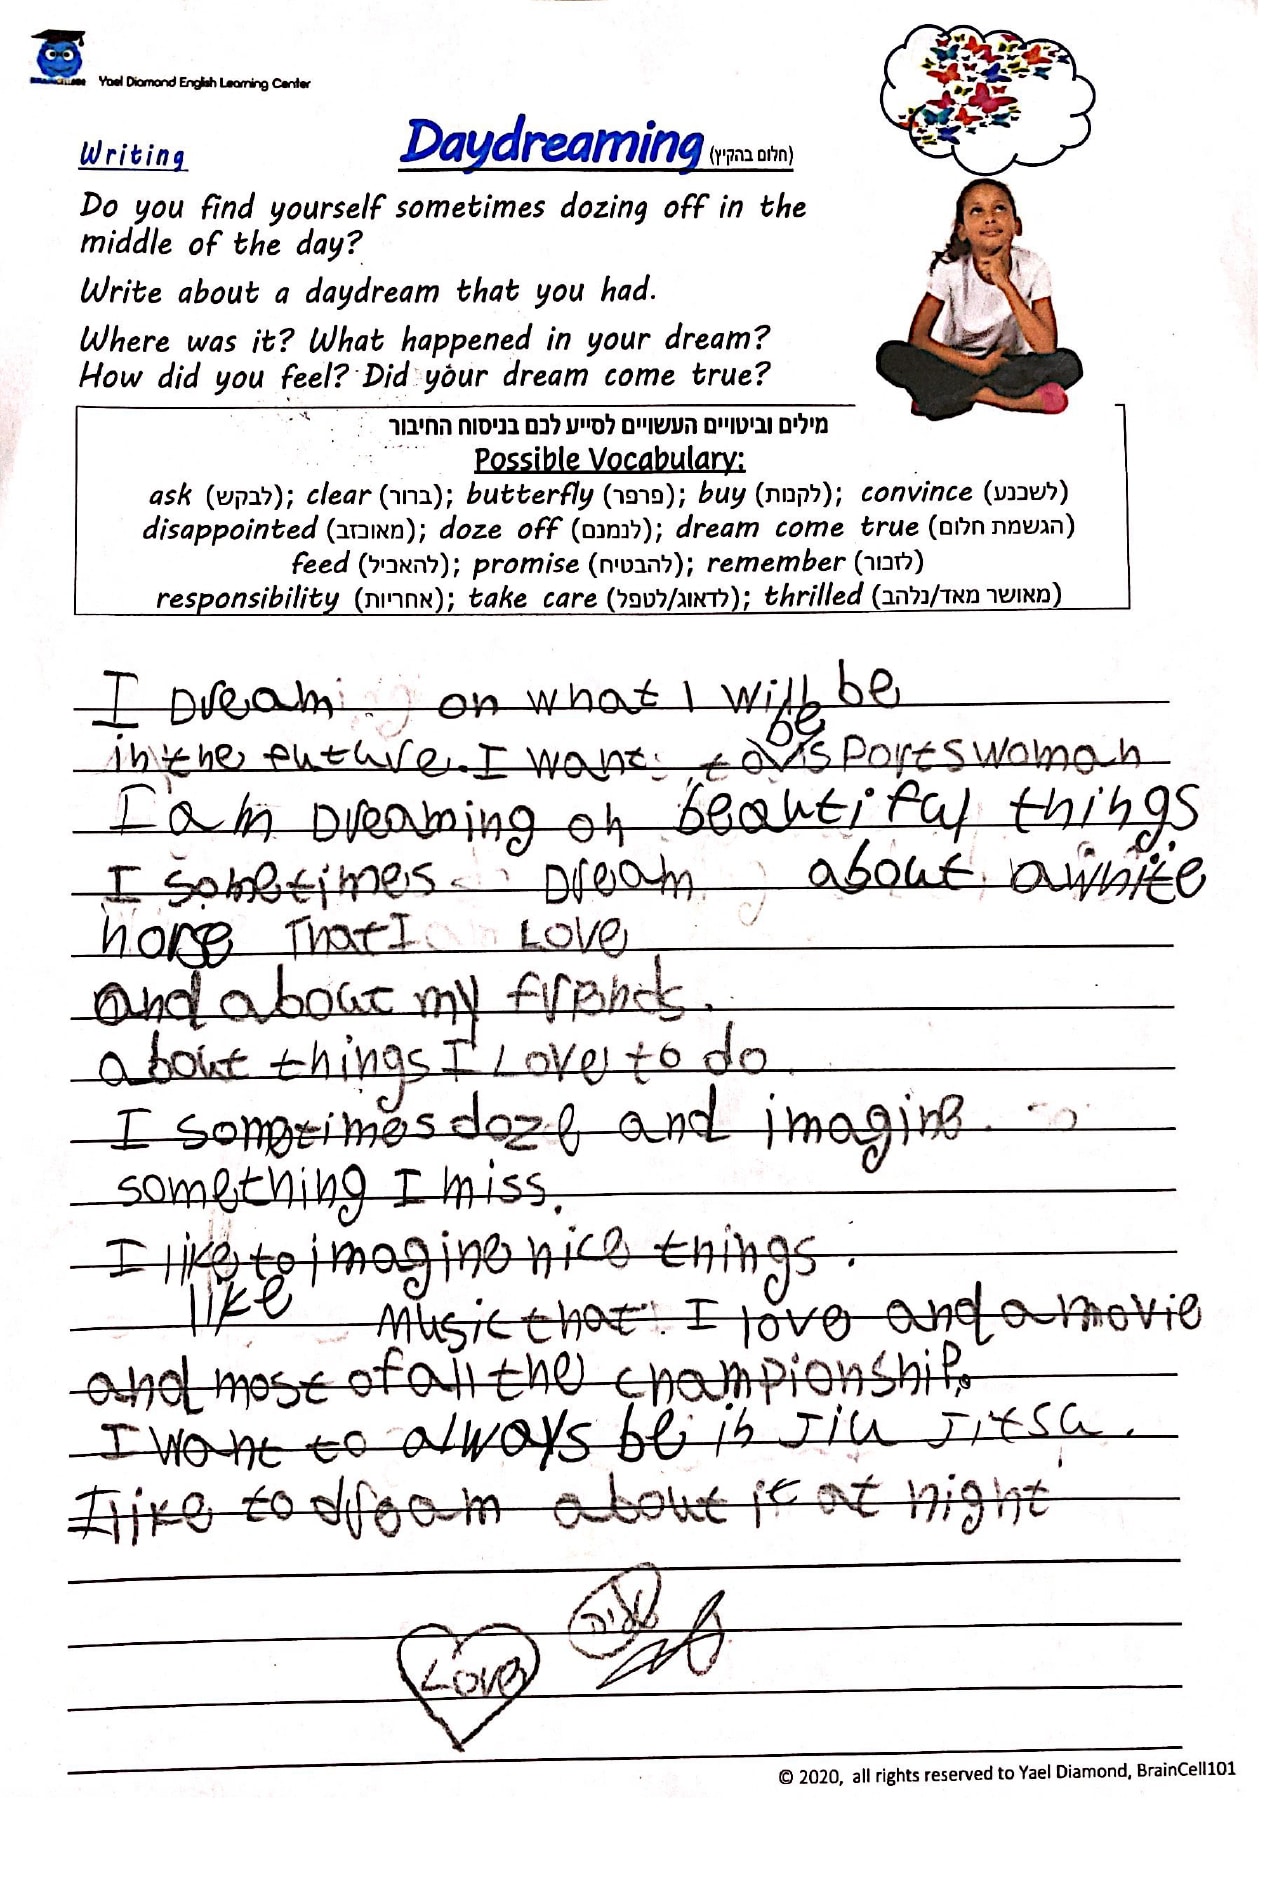 BRAINCELL101
Yael Diamond English Learning Center
Writing
Daydreaming (חלום בהקיץ)
Do you find yourself sometimes dozing off in the
middle of the day?
Write about a daydream that you had.
Where was it? What happened in your dream?
How did you feel? Did your dream come true?
מילים וביטויים העשויים לסייע לכם בניסוח החיבור
Possible Vocabulary:
ask (לבקש); clear (ברור); butterfly (פרפר); buy (לקנות); convince (לשכנע)
disappointed (מאוכזב); doze off (לנמנם); dream come true (הגשמת חלום)
feed (להאכיל); promise (להבטיח); remember (לזכור)
responsibility (אחריות); take care (לדאוג/לטפל); thrilled (מאושר מאד/נלהב)
I Dream on what I will be
in the future. I want to be a sportswoman
I am Dreaming on beautiful things
I sometimes Dream about a white
horse That I Love
and about my friends.
about things I Love to do
I sometimes doze and imagine
something I miss.
I like to imagine nice things.
like Music that I love and a movie
and most of all the championship.
I want to always be in Jiu Jitsu.
I like to dream about it at night
Love